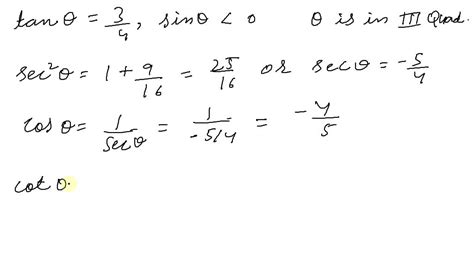 tan θ = 3/4, sin θ < 0 θ is in III Quad.
sec²θ = 1 + 9/16 = 25/16 or sec θ = -5/4
cos θ = 1/sec θ = 1/-5/4 = -4/5
cot θ